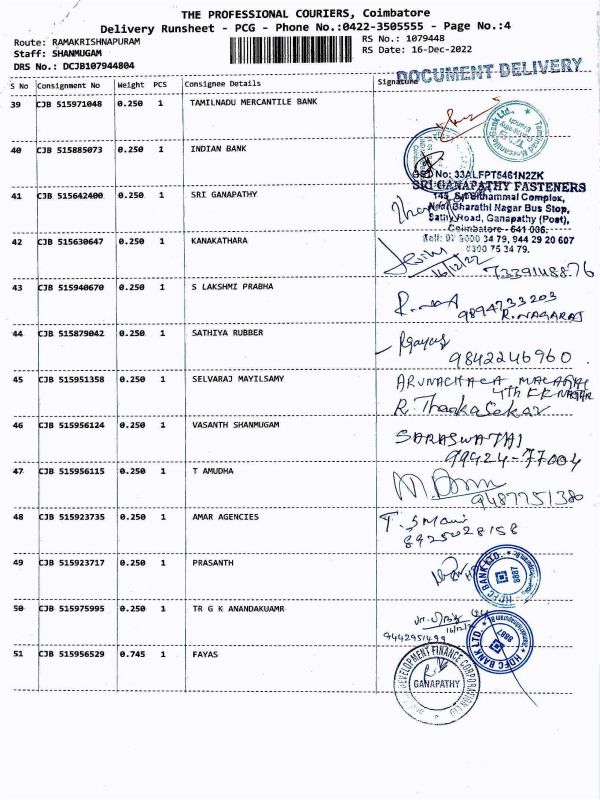 THE PROFESSIONAL COURIERS, Coimbatore
Delivery Runsheet - PCG - Phone No.:0422-3505555 - Page No.:4
Route: RAMAKRISHNAPURAM
Staff: SHANMUGAM
DRS No.: DCJB107944804
RS No.: 1079448
RS Date: 16-Dec-2022
DOCUMENT DELIVERY
S No Consignment No Weight PCS Consignee Details Signature
39 CJB 515971048 0.250 1 TAMILNADU MERCANTILE BANK
40 CJB 515885073 0.250 1 INDIAN BANK
GST No: 33ALFPT5461N2ZK
SRI GANAPATHY FASTENERS
41 CJB 515642400 0.250 1 SRI GANAPATHY
145, Sri Sithammal Complex,
Bharathi Nagar Bus Stop,
Sathy Road, Ganapathy (Post),
Coimbatore - 641 006.
42 CJB 515630647 0.250 1 KANAKATHARA
34 79, 944 29 20 607
75 34 79.
16/12/22
7339148876
43 CJB 515940670 0.250 1 S LAKSHMI PRABHA
9894733203
R. NAGARAJ
44 CJB 515879042 0.250 1 SATHIYA RUBBER
9842246960
45 CJB 515951358 0.250 1 SELVARAJ MAYILSAMY
ARUNACHALA
4th KK NAGAR
R. ThankaSekar
46 CJB 515956124 0.250 1 VASANTH SHANMUGAM
SARASWATHI
99424-77004
47 CJB 515956115 0.250 1 T AMUDHA
9487751380
48 CJB 515923735 0.250 1 AMAR AGENCIES
T. S Mani
8925028158
49 CJB 515923717 0.250 1 PRASANTH
HDFC BANK LTD.
8887
50 CJB 515975995 0.250 1 TR G K ANANDAKUAMR
16/12/22
9442951499
HDFC BANK LTD
8887
51 CJB 515956529 0.745 1 FAYAS
DEVELOPMENT FINANCE CORPORATION LTD
GANAPATHY